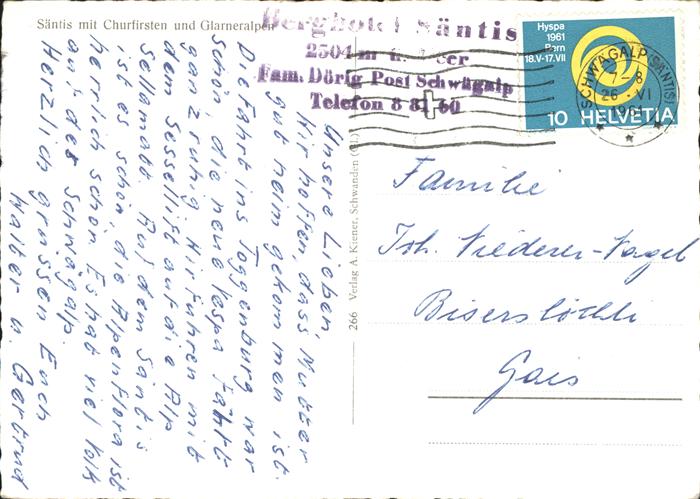 Säntis mit Churfirsten und Glarneralpen
Berghotel Säntis
2504 m ü. Meer
Fam. Dörig Post Schwägalp
Telefon 8 81 60
Hyspa
1961
Bern
18.V-17.VII
10 HELVETIA
SCHWÄGALP (SÄNTIS)
7-8
26.VI
Unsere Lieben,
Wir hoffen, dass Mutter
gut heim gekommen ist.
Die Fahrt ins Toggenburg war
schön die neue Vespa fährt
ganz ruhig. Wir fuhren mit
dem Sessellift auf die Alp
Sellamatt. Auf dem Säntis
ist es schön, die Alpenflora ist
herrlich schön. Es hat viel Volk
auf der Schwägalp.
Herzlich grüssen Euch
Walter u. Gertrud
266 Verlag A. Kiener, Schwanden (Gl.)
Familie
Joh. Niederer-Nagel
Gais